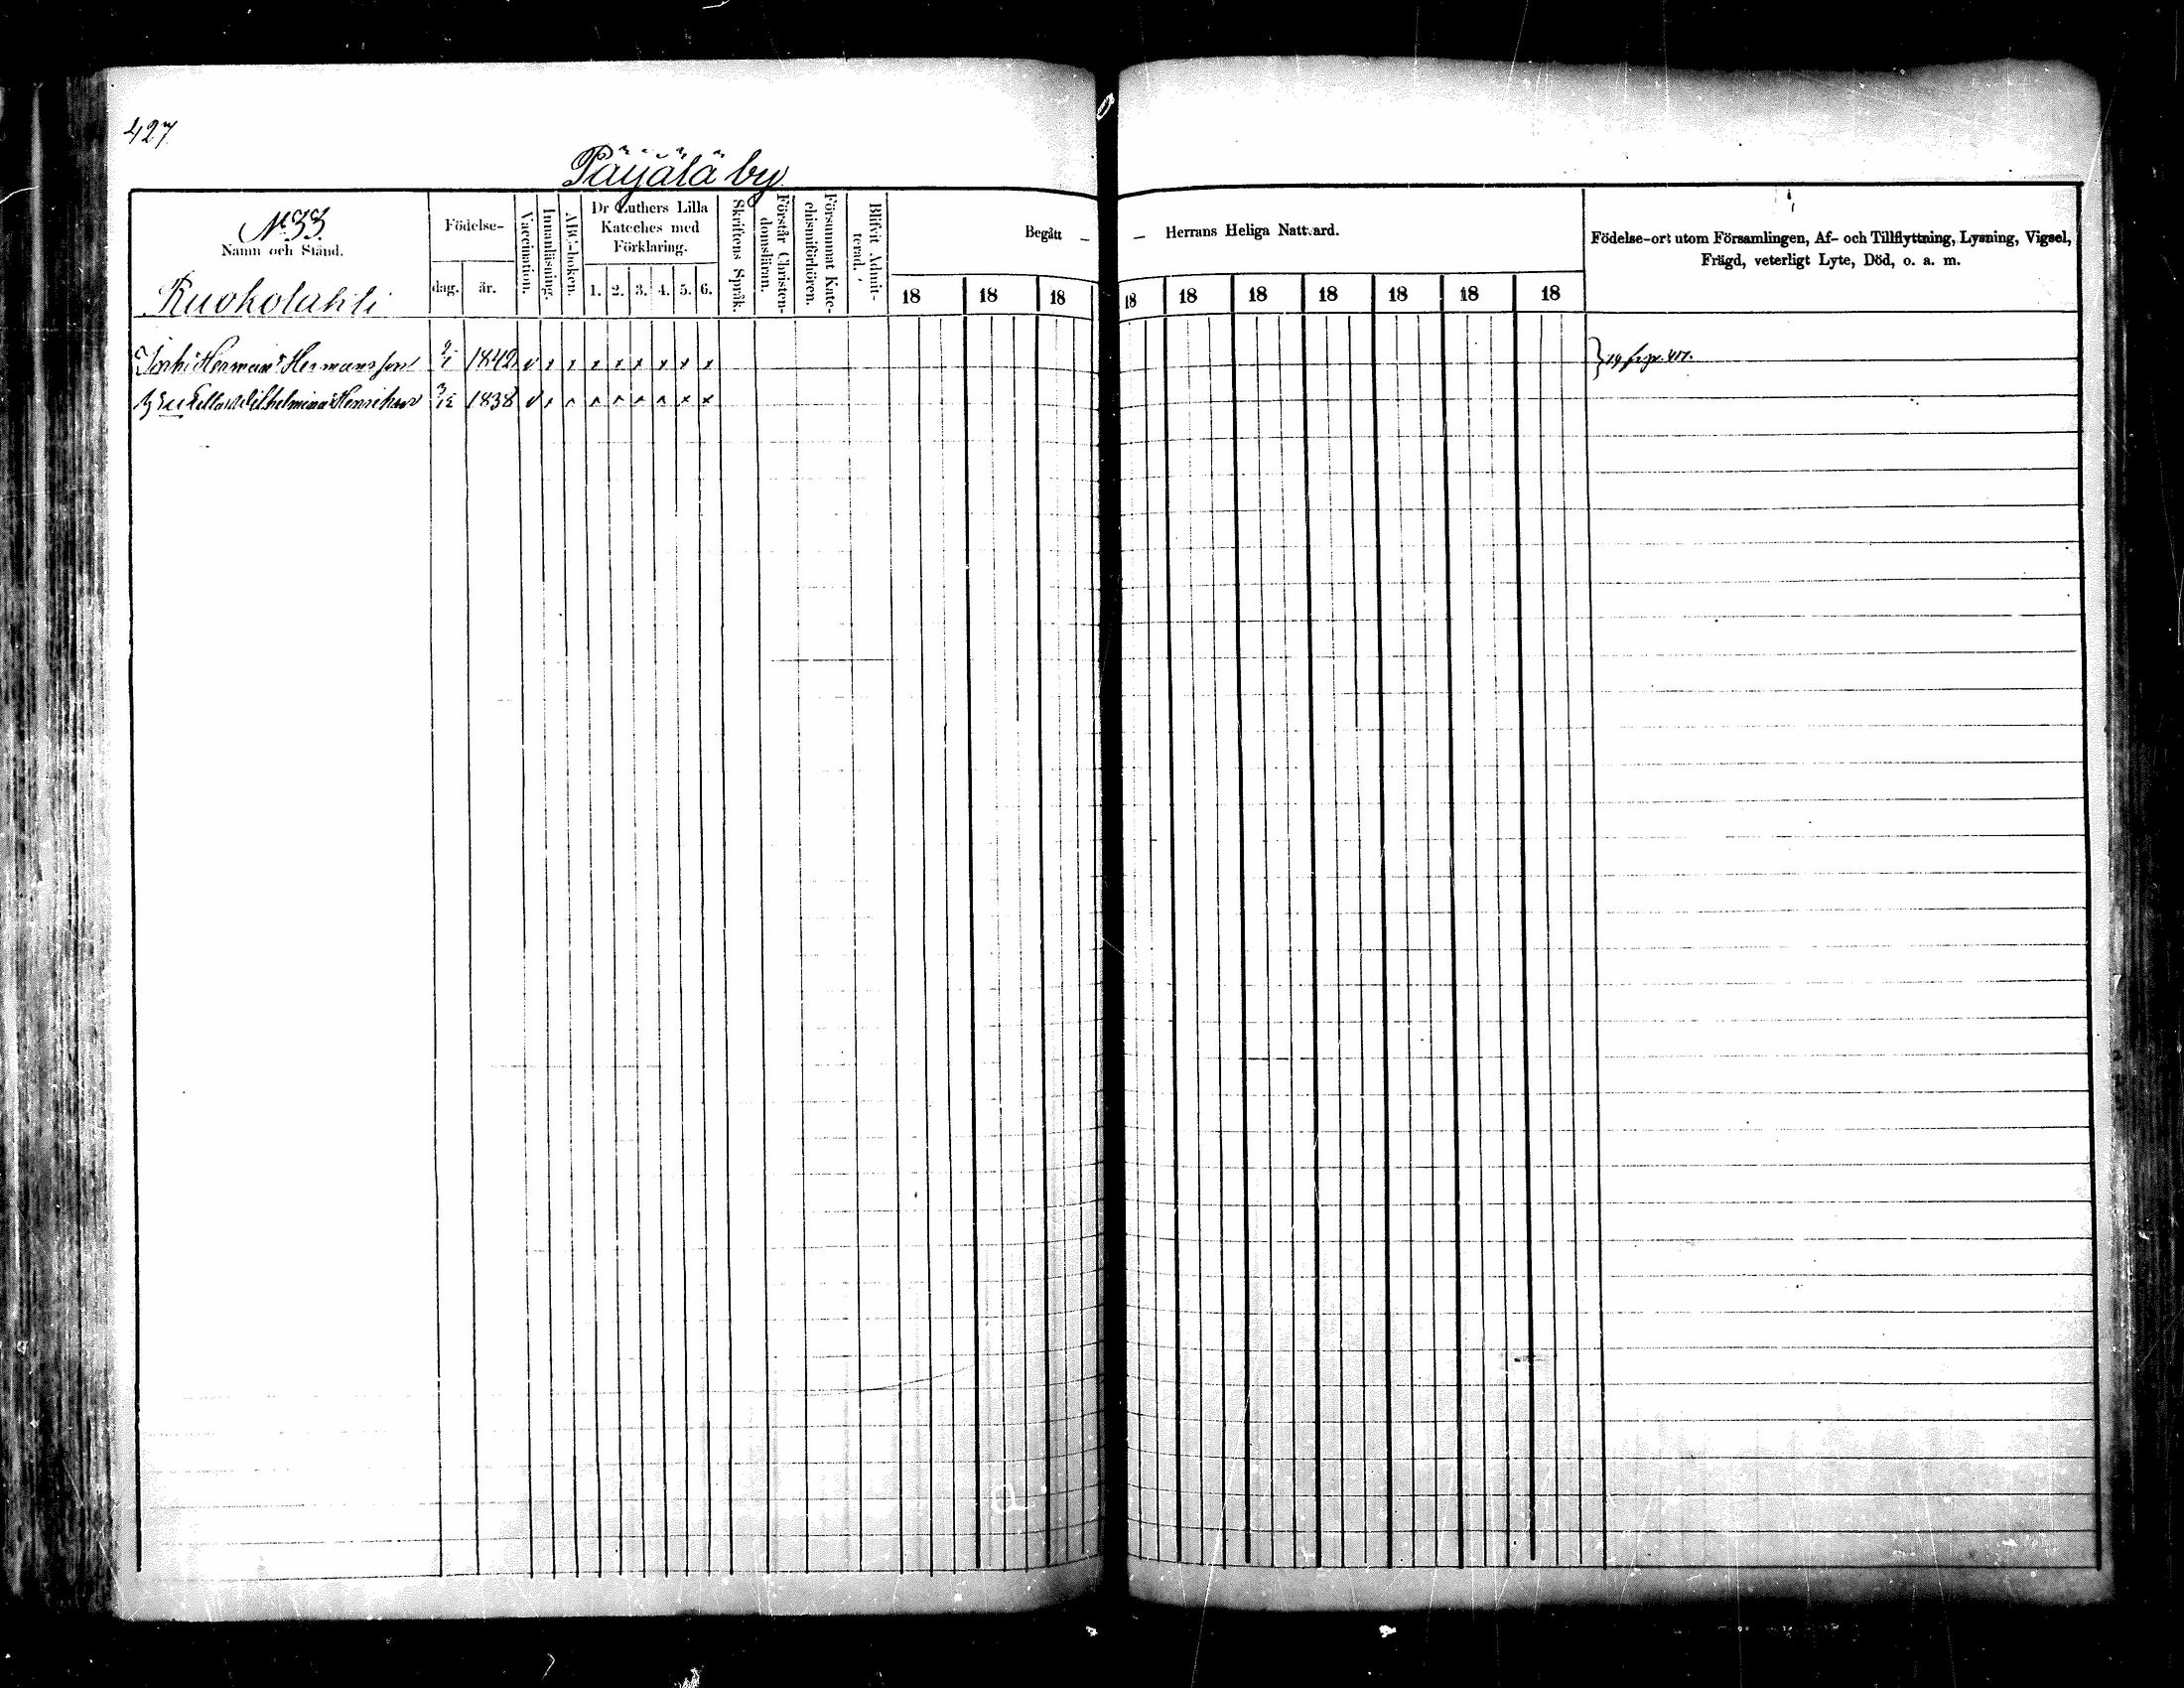 427.
Päyälä by
Nº 33.
Namn och Stånd.
Ruokolahti
Födelse-
dag. år.
Vaccination.
Innanläsning.
ABC-boken.
Dr Luthers Lilla
Kateches med
Förklaring.
1. 2. 3. 4. 5. 6.
Skriftens Språk.
Förstår Christen-
domsläran.
Försummat Kate-
chismiförhören.
Blifvit Admit-
terad.
Begått —
18 18 18
— Herrans Heliga Nattvard.
18 18 18 18 18 18 18
Födelse-ort utom Församlingen, Af- och Tillflyttning, Lysning, Vigsel,
Frägd, veterligt Lyte, Död, o. a. m.
Herman Hermansson 1842
Wilhelmina Henriksd 1838